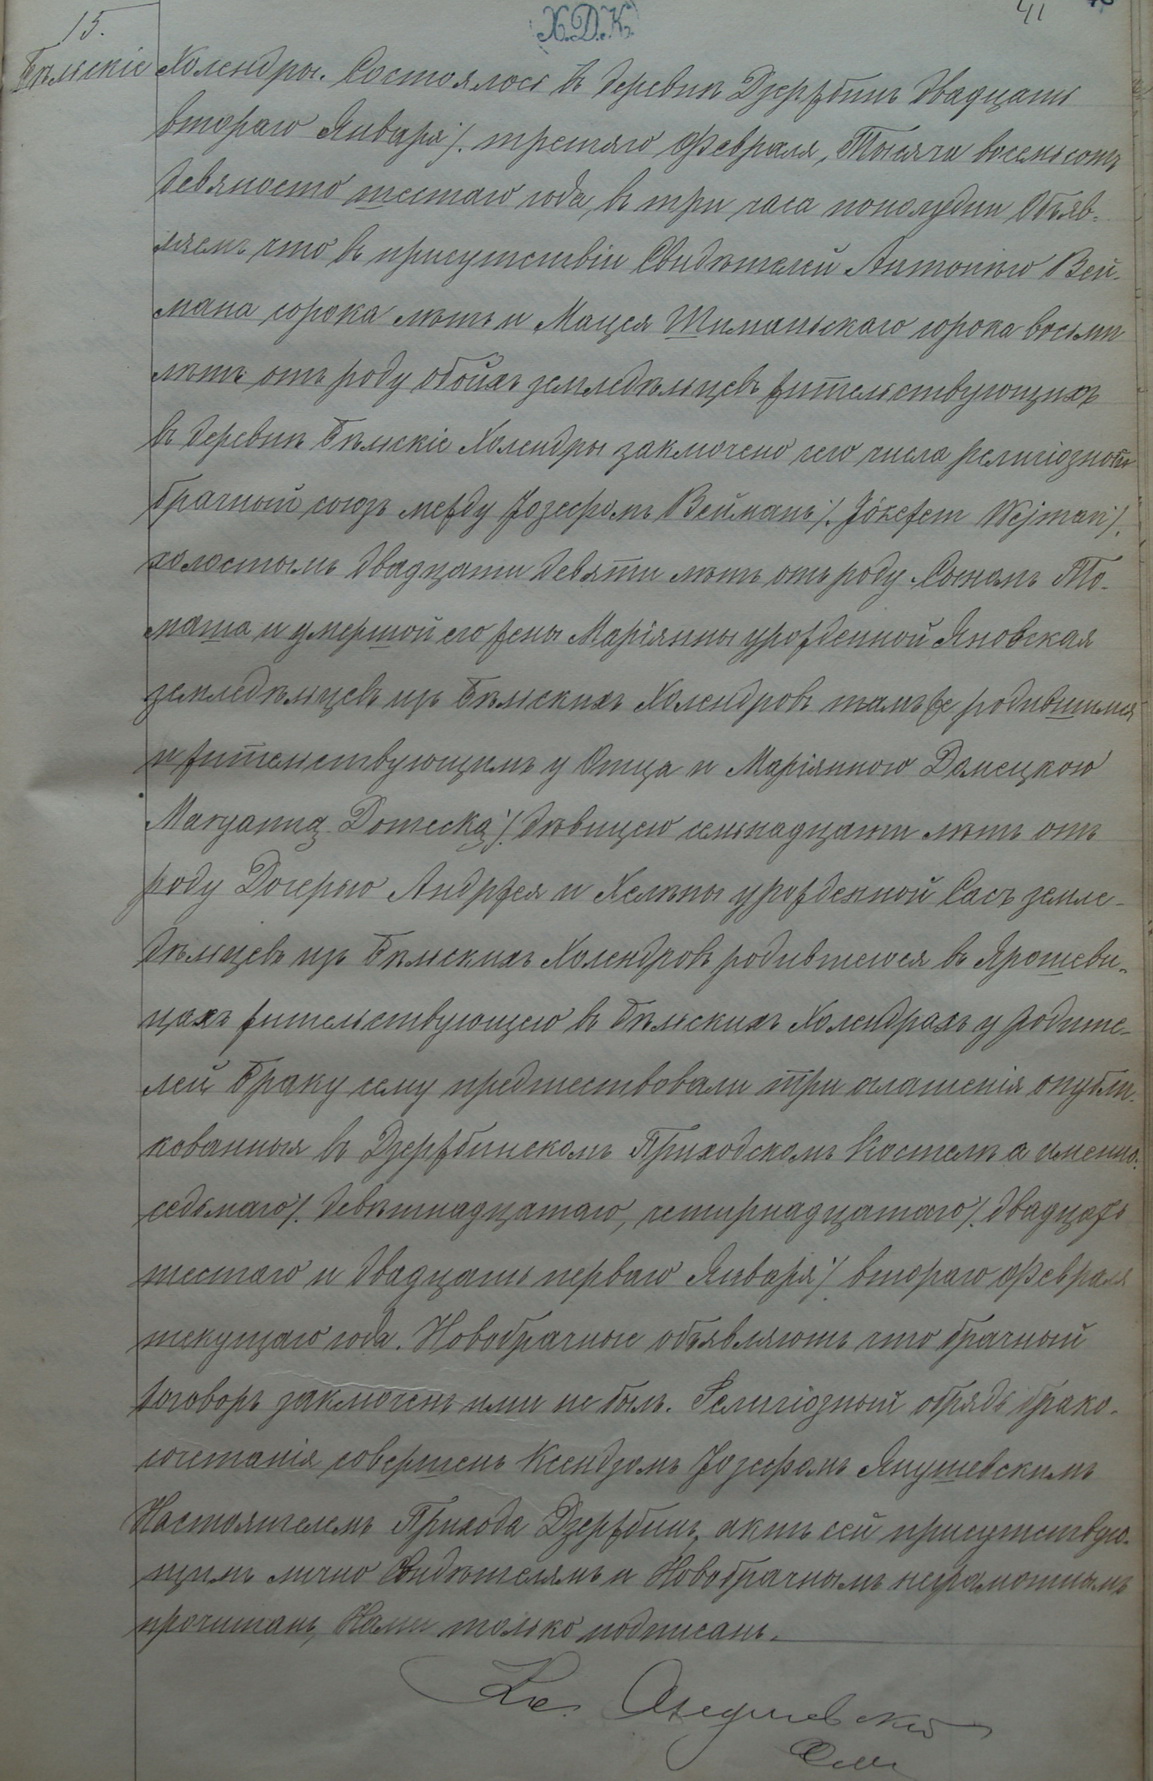 15.
Х.Д.К.
41
Бѣльскіе Холендры. Состоялось въ деревнѣ Дзержбинъ двадцать
втораго Января /. третяго Февраля, Тысяча восемьсотъ
девяносто шестаго года, въ три часа пополудни Объяв-
ляемъ что въ присутствіи Свидѣтелей Антонѣго Вей-
мана сорока лѣтъ и Мацея Шиманьскаго сорока восьми
лѣтъ отъ роду обойхъ земледѣльцевъ жительствующихъ
въ деревнѣ Бѣльскіе Холендры заключено сего числа религіозный
брачный союзъ между Іозефомъ Вейманъ /. Józefem Wejman /.
холостымъ двадцати девяти лѣтъ отъ роду Сыномъ То-
маша и умершой его жены Маріянны урожденной Яновская
земледѣльцевъ изъ Бѣльскихъ Холендровъ тамъже родившимся
и жительствующимъ у Отца и Маріянною Домецкою
Maryanną Domecką /. дѣвицею семьнадцати лѣтъ отъ
роду Дочерью Андржея и Хелѣны урожденной Сась земле-
дѣльцевъ изъ Бѣльскихъ Холендровъ родившеюся въ Ярошеви-
цахъ жительствующею въ Бѣльскихъ Холендрахъ у родите-
лей Браку сему предшествовали три оглашенія опубли-
кованныя въ Дзержбинскомъ Приходскомъ Костелѣ а именно:
седьмаго /. девятнадцатаго, четырнадцатаго /. двадцать
шестаго и двадцать перваго Января /. втораго Февраля
текущаго года. Новобрачные объявляютъ что брачный
договоръ заключенъ ими не былъ. Религіозный обрядъ брако-
сочетанія совершенъ Ксендзомъ Іозефомъ Янушевскимъ
Настоятелемъ Прихода Дзержбинъ, актъ сей присутствую-
щимъ лично Свидѣтелямъ и Новобрачнымъ неграмотнымъ
прочитанъ, Нами только подписанъ.
Кс.